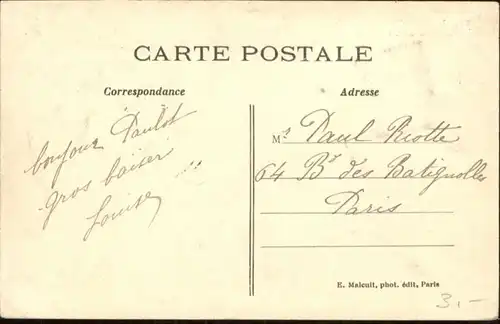 CARTE POSTALE
Correspondance
bonjour Paulot
gros baiser
Louise
Adresse
Mr Paul Riotte
64 Bd des Batignolles
Paris
E. Malcuit, phot. édit, Paris
3.-